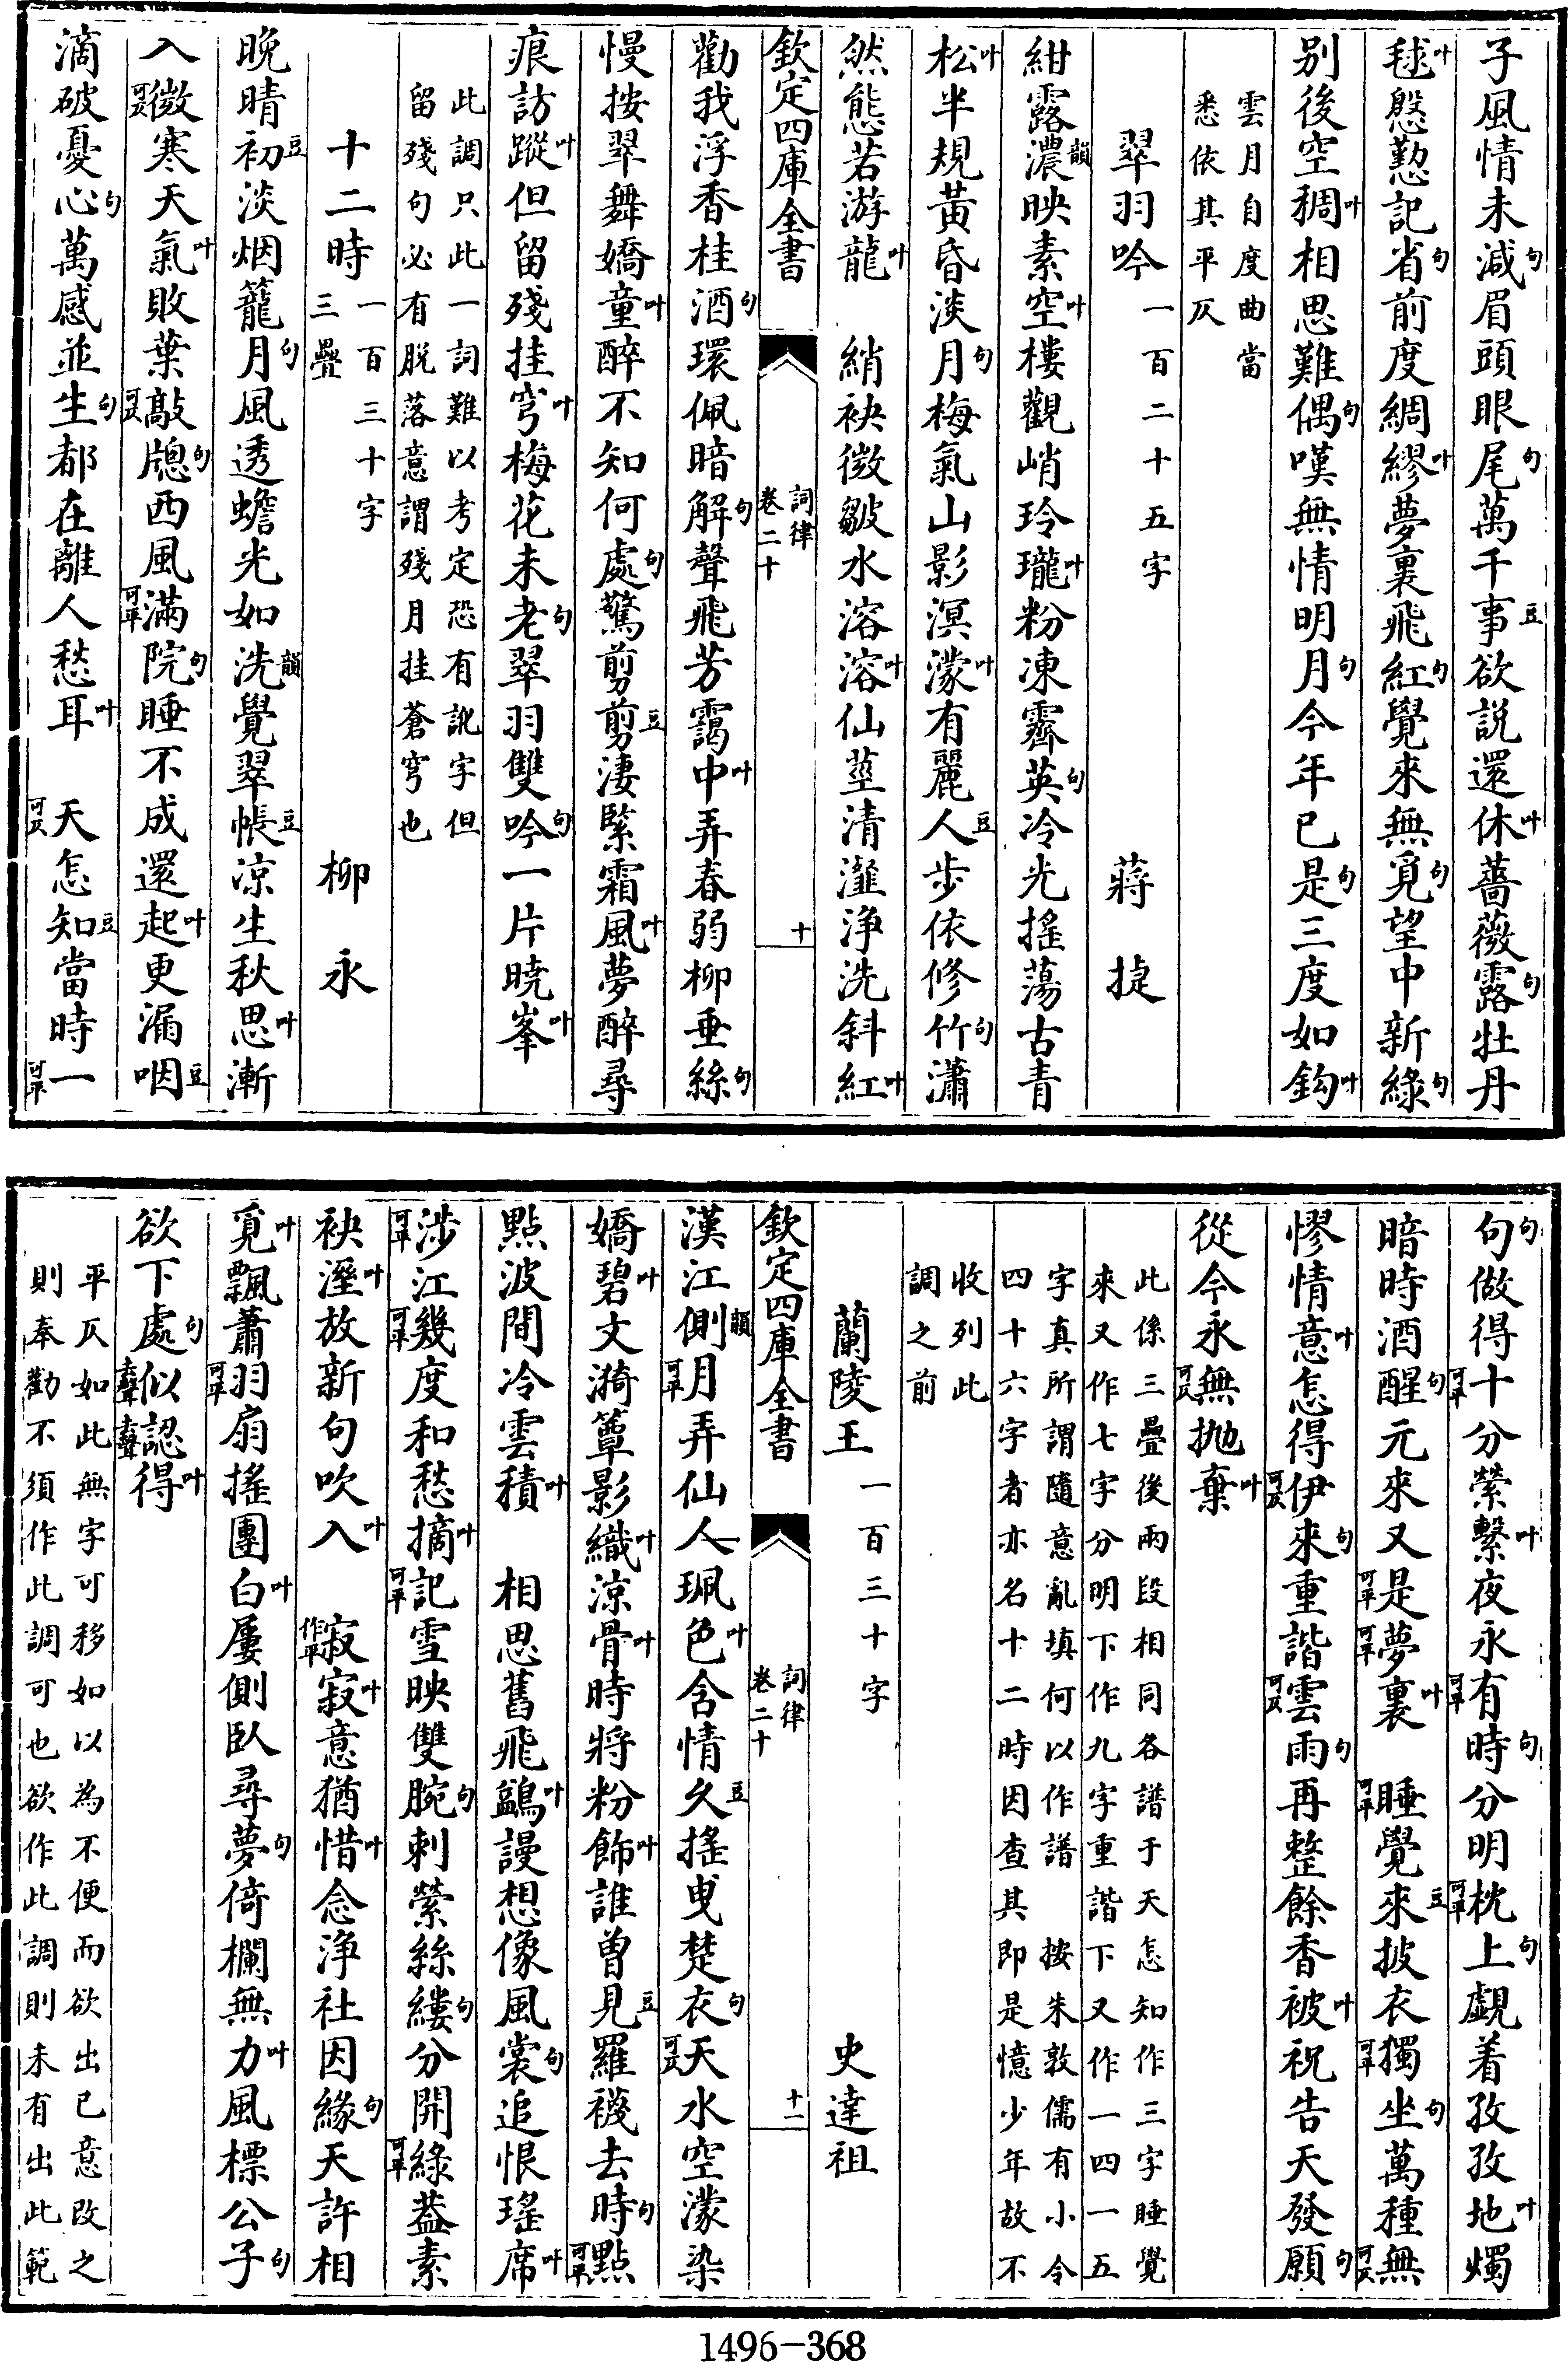 子風情未減句眉頭眼尾句萬千事豆欲說還休叶薔薇露句牡丹
毬叶慇懃記省句前度綢繆叶夢裏飛紅句覺來無覓句望中新綠句
别後空稠叶相思難偶句嘆無情明月句今年已是句三度如鈎叶
雲月自度曲當
悉依其平仄
翠羽吟一百二十五字 蔣捷
紺露濃韻映素空叶樓觀峭玲瓏叶粉凍霽英句冷光搖蕩古青
松叶半規黃昏淡月句梅氣山影溟濛叶有麗人豆步依修竹句瀟
然態若游龍叶 綃袂微皺水溶溶叶仙莖清瀣淨洗斜紅叶
欽定四庫全書 詞律 卷二十 十
勸我浮香桂酒句環佩暗解句聲飛芳靄中叶弄春弱柳垂絲句
慢按翠舞嬌童叶醉不知何處句驚剪剪豆淒緊霜風叶夢醉尋
痕訪蹤叶但留殘挂穹叶梅花未老句翠羽雙吟句一片曉峯叶
此調只此一詞難以考定恐有訛字但
留殘句必有脫落意謂殘月挂蒼穹也
十二時一百三十字
三疊 柳永
晚晴初豆淡烟籠月句風透蟾光如洗韻覺翠帳豆涼生秋思叶漸
入可仄微寒天氣叶敗葉可仄敲牕句西風可平滿院句睡不成還起叶更漏咽豆
滴破憂心句萬感並生句都在離人愁耳叶 可仄天怎知豆當時可平一
句句做得可平十分縈繫叶夜永可平有時句分明可平枕上句覷着孜孜地叶燭
暗時酒醒句元來又可平是可平夢裏叶 可平睡覺來豆披衣可平獨坐句萬種可仄無
憀情意叶怎得可仄伊來句重諧可仄雲雨句再整餘香被叶祝告天發願句
從今永可仄無抛棄叶
此係三疊後兩段相同各譜于天怎知作三字睡覺
來又作七字分明下作九字重諧下又作一四一五
字真所謂隨意亂填何以作譜 按朱敦儒有小令
四十六字者亦名十二時因查其即是憶少年故不
收列此
調之前
蘭陵王一百三十字 史達祖
欽定四庫全書 詞律 卷二十 十一
漢江側韻可平月弄仙人珮色叶含情久豆搖曳楚衣句可仄天水空濛染
嬌碧叶文漪簟影織叶涼骨叶時將粉飾叶誰曾見豆羅襪去時句可平點
點波間冷雲積叶 相思舊飛鷁叶謾想像風裳句追恨瑤席叶
可平涉江可平幾度和愁摘叶可平記雪映雙腕句刺縈絲縷句分開可平綠蓋素
袂溼叶放新句吹入叶 作平寂寂叶意猶惜叶念淨社因緣句天許相
覓叶飄蕭可平羽扇搖團白叶屢側臥尋夢句倚欄無力叶風標公子句
欲下處句去聲似去聲認得叶
平仄如此無字可移如以為不便而欲出已意改之
則奉勸不須作此調可也欲作此調則未有出此範
1496-368